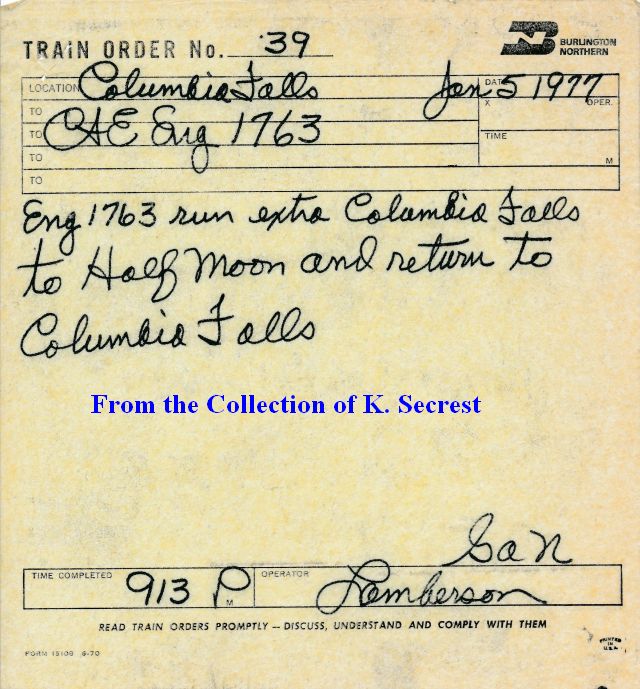 TRAIN ORDER No. 39
BURLINGTON
NORTHERN
LOCATION Columbia Falls DATE Jan 5 1977
TO X OPER.
TO C&E Eng 1763 TIME
TO M
TO
Eng 1763 run extra Columbia Falls
to Half Moon and return to
Columbia Falls
From the Collection of K. Secrest
TIME COMPLETED 913 P M OPERATOR Lamberson
READ TRAIN ORDERS PROMPTLY — DISCUSS, UNDERSTAND AND COMPLY WITH THEM
FORM 15109 6-70
PRINTED
IN
U.S.A.